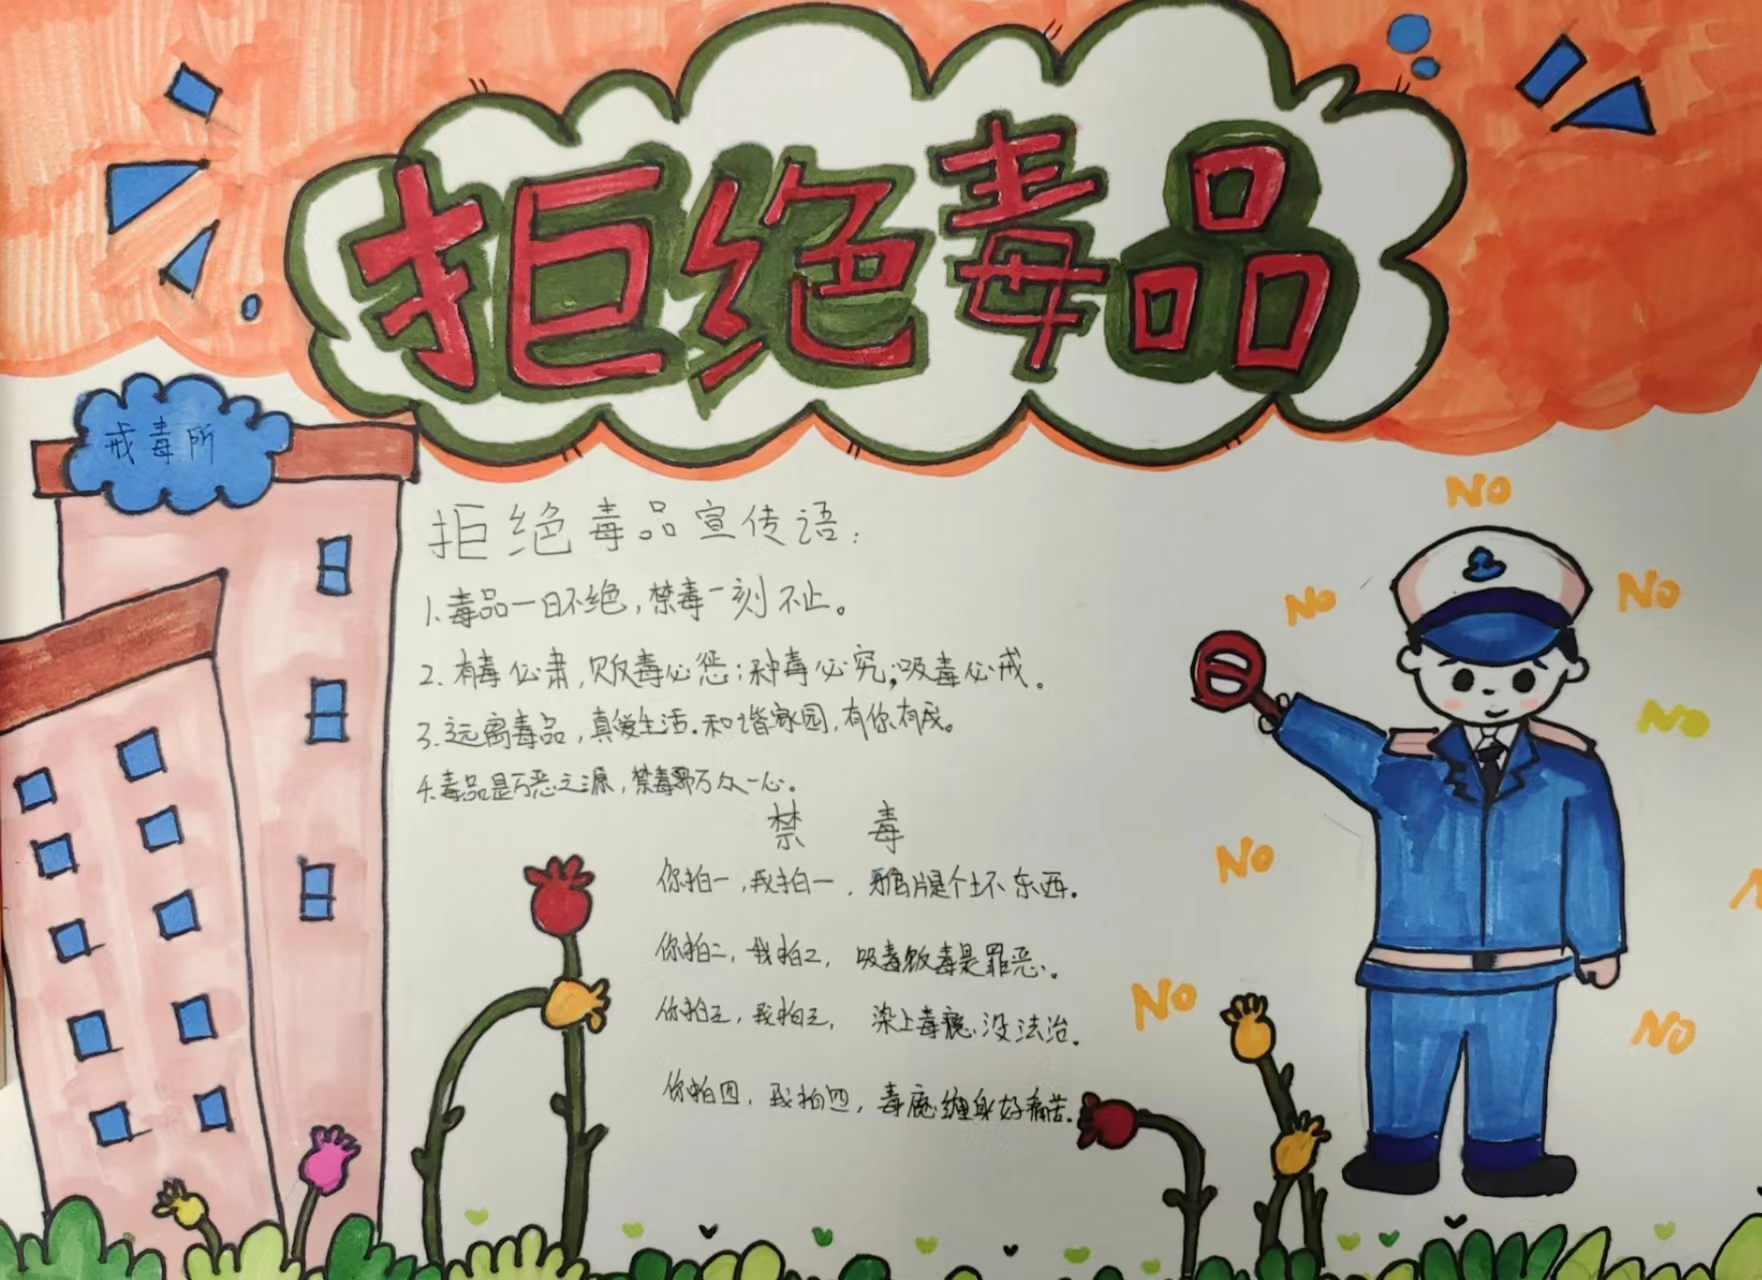 拒绝毒品
戒毒所
拒绝毒品宣传语：
1.毒品一日不绝，禁毒一刻不止。
2.有毒必肃，贩毒必惩；种毒必究；吸毒必戒。
3.远离毒品，真爱生活。和谐家园，有你有我。
4.毒品是万恶之源，禁毒需万众一心。
禁 毒
你拍一，我拍一，鸦片是个坏东西。
你拍二，我拍二，吸毒贩毒是罪恶。
你拍三，我拍三，染上毒瘾没法治。
你拍四，我拍四，毒魔缠身好痛苦。
NO
NO
NO
NO
NO
NO
NO